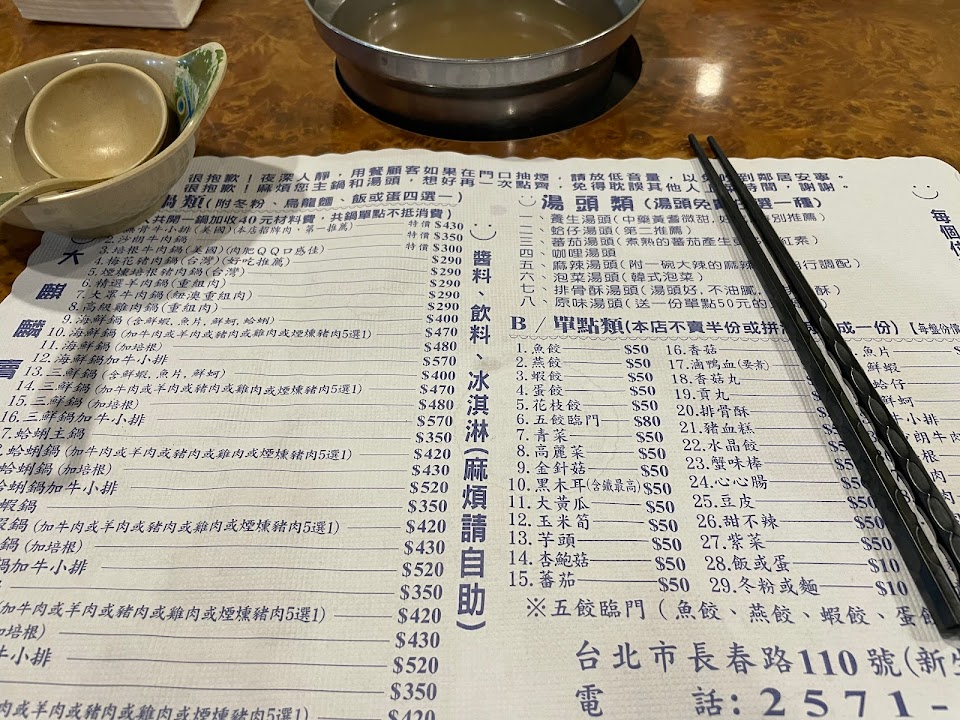 很抱歉！夜深人靜，用餐顧客如果在門口抽煙，請放低音量，以免吵到鄰居安寧。
很抱歉！麻煩您主鍋和湯頭，想好再一次點齊，免得耽誤其他人上菜時間，謝謝。
鍋類(附冬粉、烏龍麵、飯或蛋四選一)
人共開一鍋加收40元材料費，共鍋單點不抵消費)
無骨牛肉鍋(美國)(本店招牌肉、第一推薦) 特價$430
2.沙朗牛肉鍋 特價$350
3.培根牛肉鍋(美國)(肉肥QQ口感佳) 特價$300
4.梅花豬肉鍋(台灣)(好吃推薦) $290
5.煙燻培根豬肉鍋(台灣) $290
6.精選羊肉鍋(重組肉) $290
7.大眾牛肉鍋(紐澳重組肉) $290
8.高級雞肉鍋(重組肉) $290
9.海鮮鍋(含鮮蝦,魚片,鮮蚵,蛤蜊) $400
10.海鮮鍋(加牛肉或羊肉或豬肉或雞肉或煙燻豬肉5選1) $470
11.海鮮鍋(加培根) $480
12.海鮮鍋加牛小排 $570
13.三鮮鍋(含鮮蝦,魚片,鮮蚵) $400
14.三鮮鍋(加牛肉或羊肉或豬肉或雞肉或煙燻豬肉5選1) $470
15.三鮮鍋(加培根) $480
16.三鮮鍋加牛小排 $570
7.蛤蜊王鍋 $350
蛤蜊鍋(加牛肉或羊肉或豬肉或雞肉或煙燻豬肉5選1) $420
蛤蜊鍋(加培根) $430
蛤蜊鍋加牛小排 $520
蝦鍋 $350
蝦鍋(加牛肉或羊肉或豬肉或雞肉或煙燻豬肉5選1) $420
鍋(加培根) $430
鍋加牛小排 $520
$350
加牛肉或羊肉或豬肉或雞肉或煙燻豬肉5選1) $420
加培根) $430
牛小排 $520
$350
或羊肉或豬肉或雞肉或煙燻豬肉5選1) $420
醬料、飲料、冰淇淋(麻煩請自助)
湯頭類(湯頭免費任選一種)
一、養生湯頭(中藥黃耆微甜,好 特別推薦)
二、蛤仔湯頭(第二推薦)
三、蕃茄湯頭(煮熟的蕃茄產生更多 紅素)
四、咖哩湯頭
五、麻辣湯頭(附一碗大辣的麻辣 自行調配)
六、泡菜湯頭(韓式泡菜)
七、排骨酥湯頭(湯頭好,不油膩 酥)
八、原味湯頭(送一份單點50元的
B/單點類(本店不賣半份或拼 成一份)【每盤份價
1.魚餃 $50
2.燕餃 $50
3.蝦餃 $50
4.蛋餃 $50
5.花枝餃 $50
6.五餃臨門 $80
7.青菜 $50
8.高麗菜 $50
9.金針菇 $50
10.黑木耳(含鐵最高) $50
11.大黃瓜 $50
12.玉米筍 $50
13.芋頭 $50
14.杏鮑菇 $50
15.蕃茄 $50
16.香菇
17.滷鴨血(要煮)
18.香菇丸
19.貢丸
20.排骨酥
21.豬血糕
22.水晶餃
23.蟹味棒
24.心心腸
25.豆皮
26.甜不辣
27.紫菜 $50
28.飯或蛋 $10
29.冬粉或麵 $10
魚片
鮮蝦
蛤仔
鮮蚵
小排
朗牛肉
※五餃臨門(魚餃、燕餃、蝦餃、蛋餃
台北市長春路110號(新生
電 話:2571-
每個